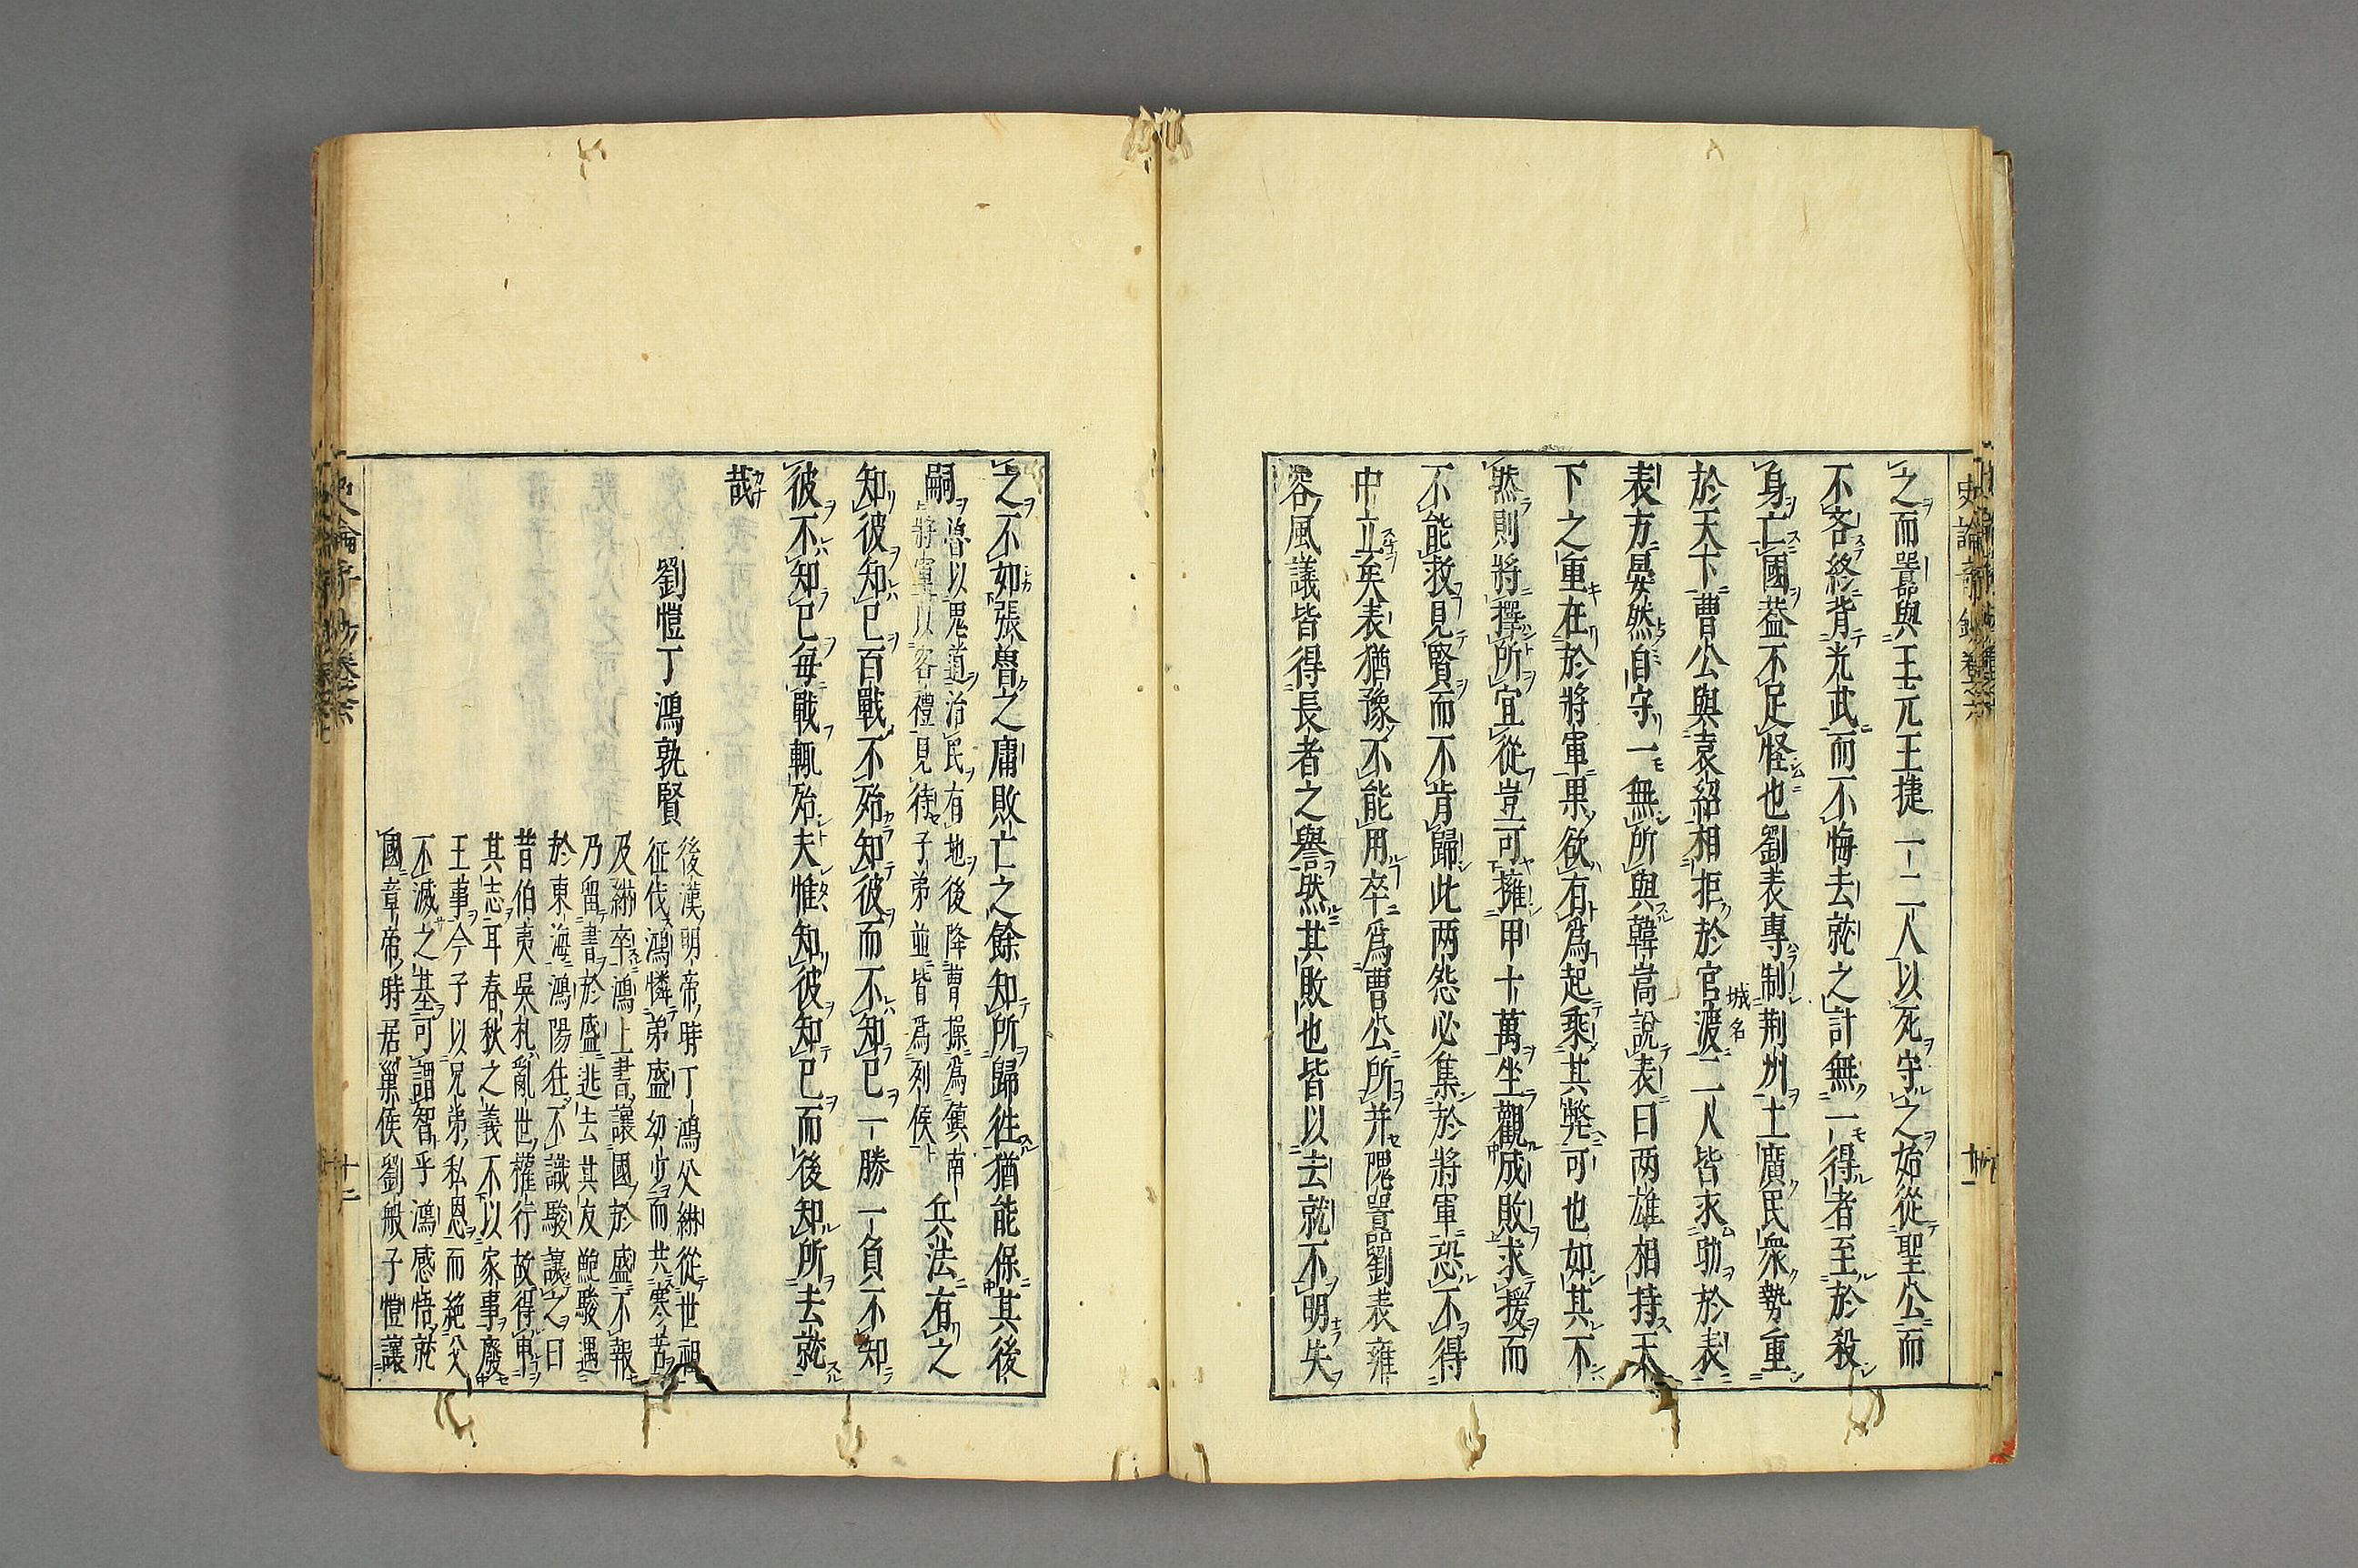 之而囂與王元王捷一二人以死守之始從聖公而
不吝終背光武而不悔去就之計無一得者至於殺
身亡國葢不足怪也劉表專制荆州土廣民衆勢重
於天下曹公與袁紹相拒於官渡城名二人皆求助於表
表方晏然自守一無所與韓嵩說表曰两雄相持天
下之重在於將軍果欲有爲起乘其弊可也如其不
然則將擇所宜從豈可擁甲十萬坐觀成敗求援而
不能救見賢而不肯歸此两怨必集於將軍恐不得
中立矣表猶豫不能用卒爲曹公所并隗囂劉表雍
容風議皆得長者之譽然其敗也皆以去就不明失
史論奇鈔卷六
十一
之不如張魯之庸敗亡之餘知所歸徃猶能保其後
嗣魯以鬼道治民有地後降曹操爲鎮南將軍以客禮見待子弟並皆爲列侯兵法有之
知彼知已百戰不殆知彼而不知已一勝一負不知
彼不知已每戰輒殆夫惟知彼知已而後知所去就
哉
劉愷丁鴻孰賢
後漢明帝時丁鴻父綝從世祖
征伐鴻憐弟盛幼少而共寒苦
及綝卒鴻上書讓國於盛不報
乃留書於盛逃去其友鮑駿遇
於東海鴻陽狂不識駿駿讓之曰
昔伯夷吳札亂世權行故得申
其志耳春秋之義不以家事廢
王事今子以兄弟私恩而絕父
不滅之基可謂智乎鴻感悟就
國章帝時居巢侯劉般子愷讓
十二